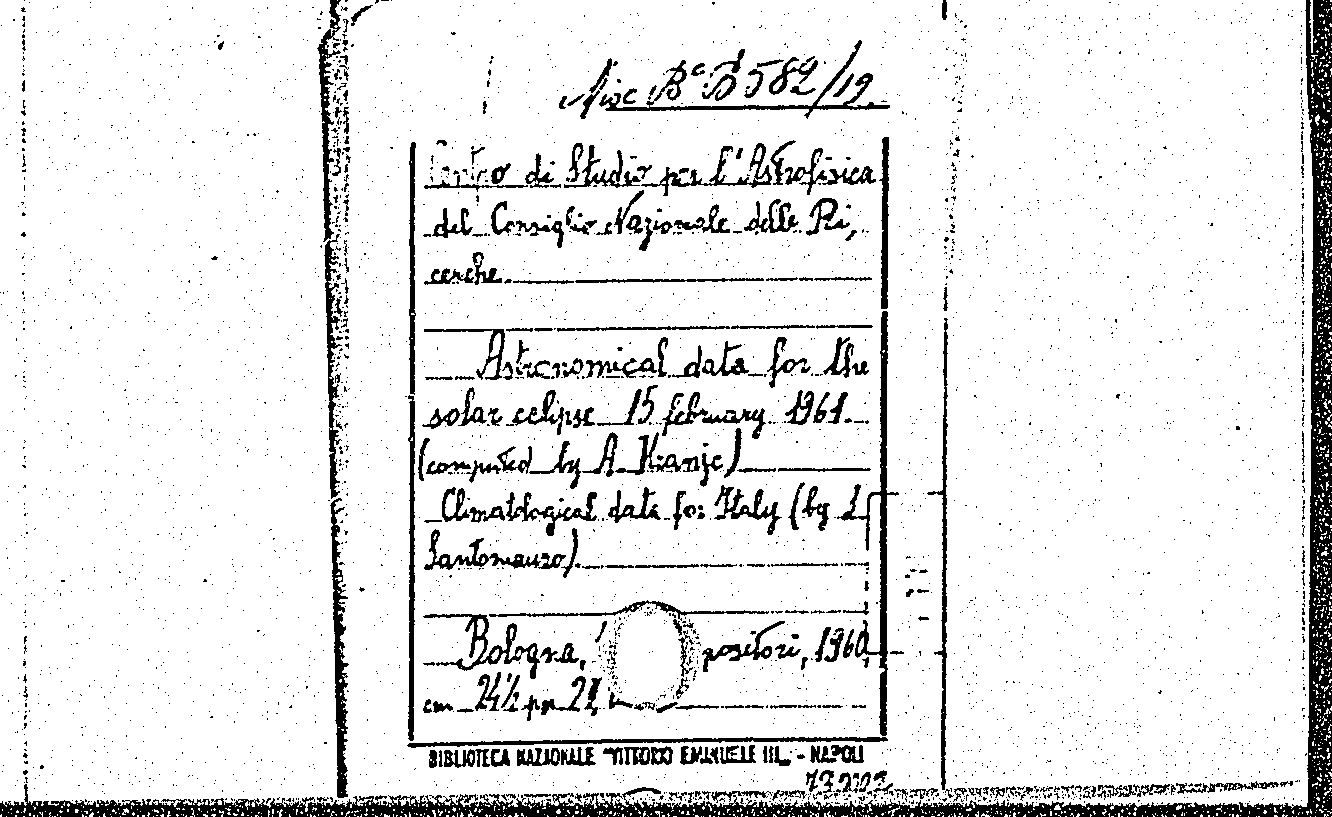 Misc Bª B 582/19
Centro di Studio per l'Astrofisica
del Consiglio Nazionale delle Ri,
cerche.
Astronomical data for the
solar eclipse 15 february 1961.
(computed by A. Kranjc)
Climatological data for Italy (by L.
Santomauro).
Bologna, positori, 1960,
cm 24½ pp. 22,
BIBLIOTECA NAZIONALE "VITTORIO EMANUELE III„ - NAPOLI